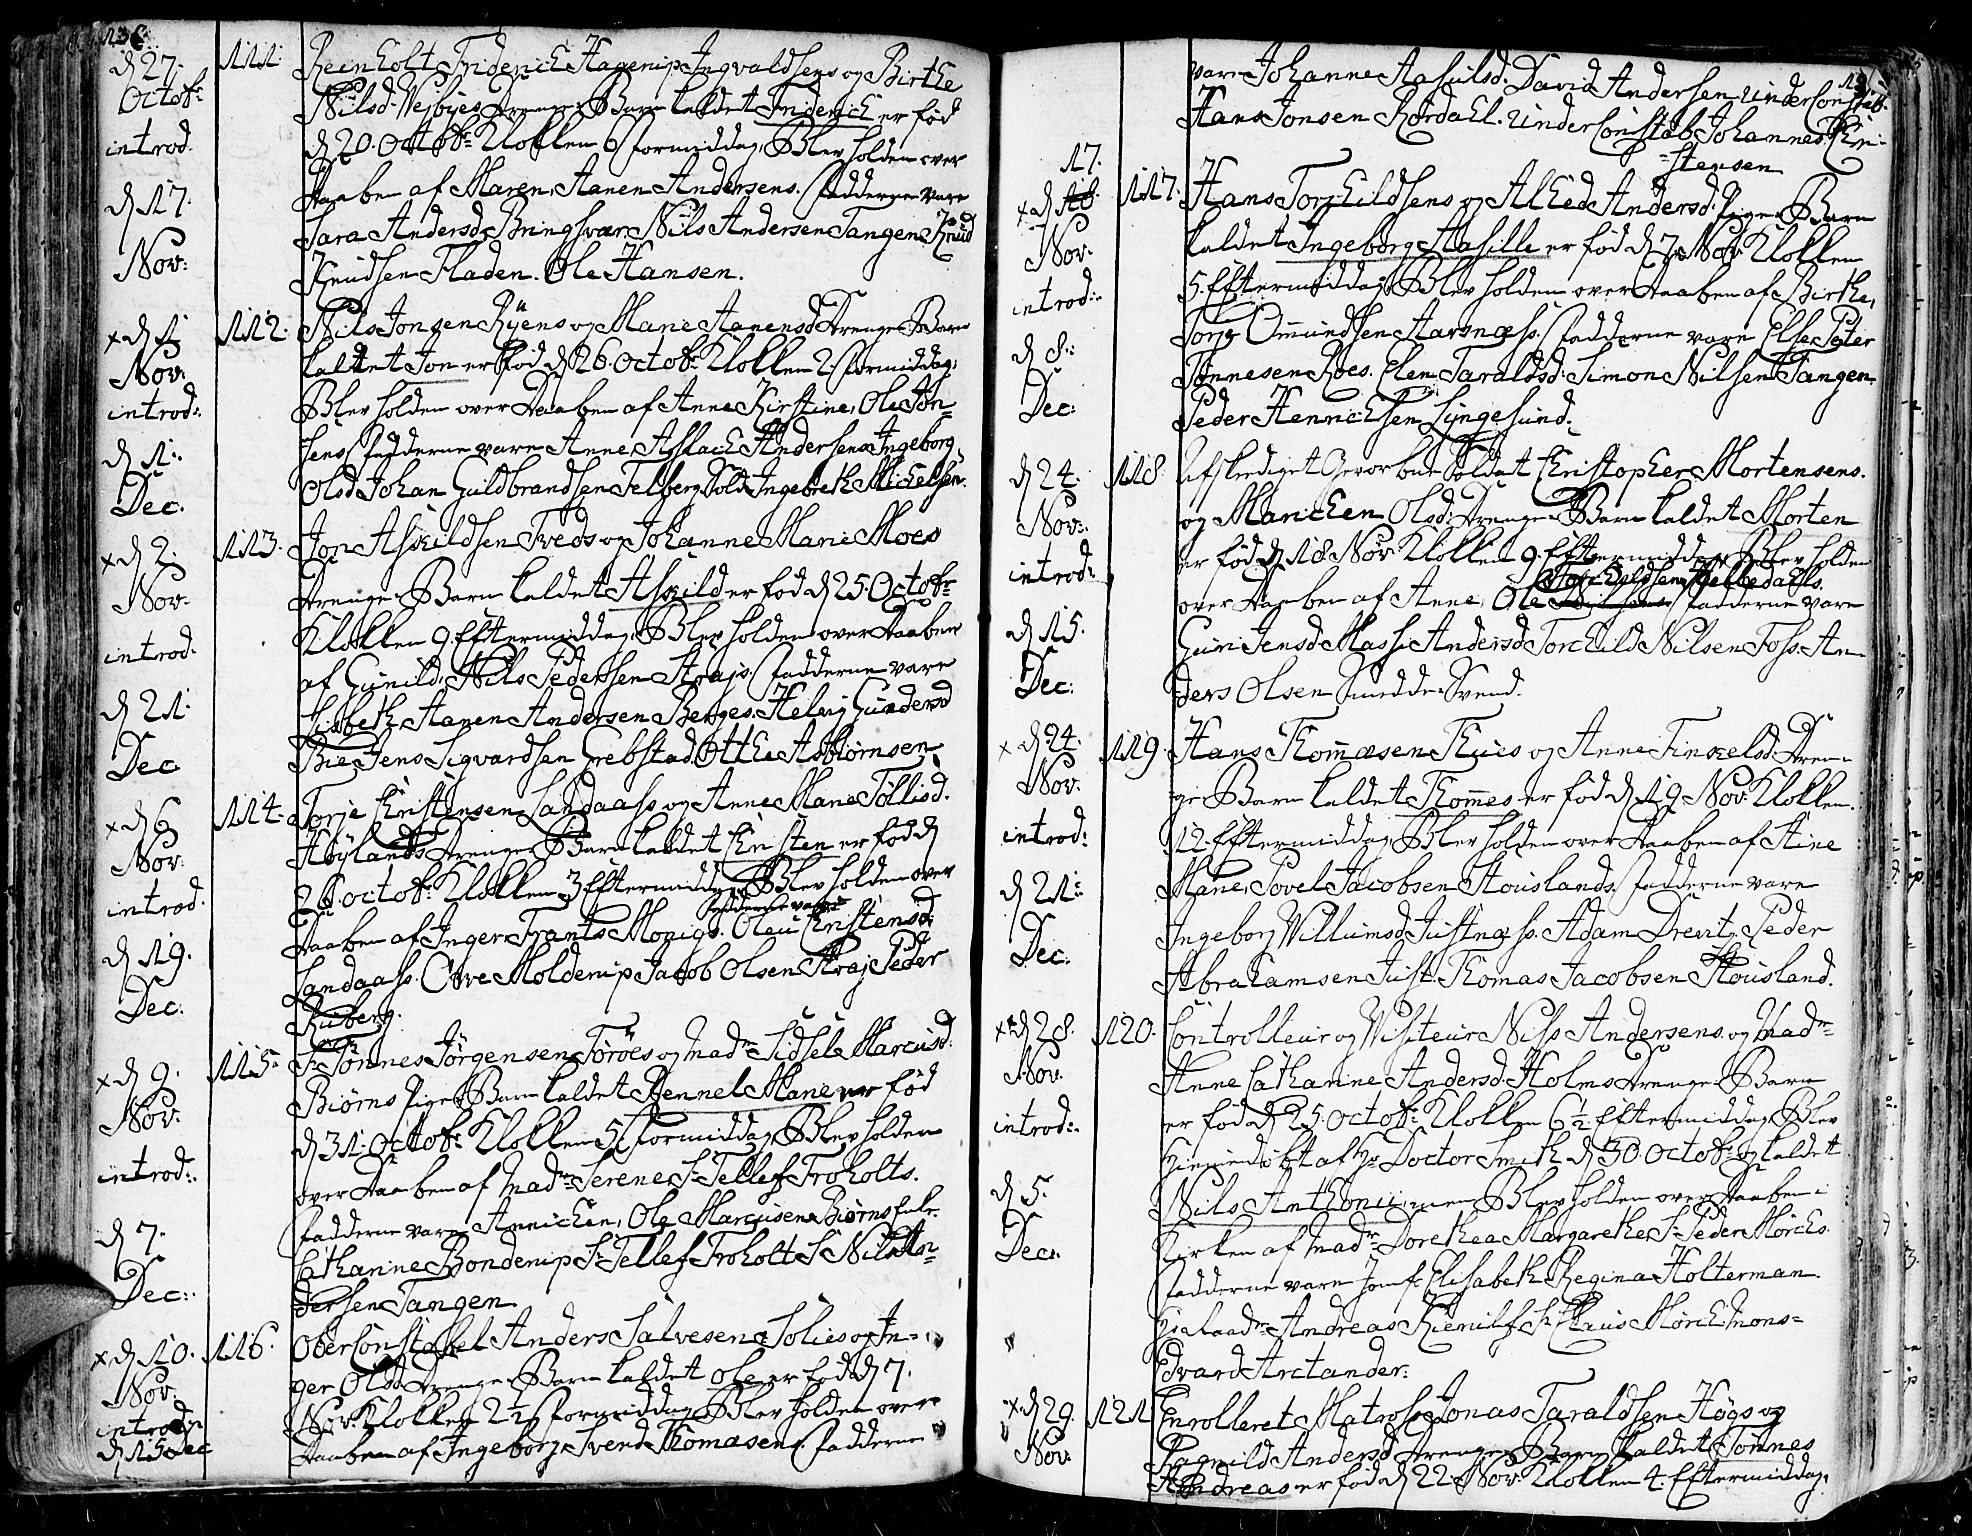 136.
d 27. Octobr: introd. d 17. Nov:
111. Reinholt Friderich Hagerup Ingvaldsens og Birthe
Nilsd. Vejbyes Drenge Barn kaldet Friderich er fød
d 20. Octobr: Klokken 6 formiddag, Blev holden over
Daaben af Maren, Aanen Andersens. Fadderne vare
Sara Andersd. Bringsvær Nils Andersen Tangen Knud
Knudsen Fladen. Ole Hansen.
x d 1. Nov: introd: d 1. Dec.
112. Nils Jonsen Ryens og Marie Aanensd Drenge Barn
kaldet Jon er fød d 26. Octobr: Klokken 2. formiddag,
Blev holden over Daaben af Anne Kirstine, Ole Jon-
sens Fadderne vare Anne, Aslach Andersens Ingeborg
Olsd Johan Guldbrandsen Felberg Sold. Ingebreth Michelsen.
x d 2. Nov: introd. d 21. Dec
113. Jon Askildsen Tveds og Johanne Marie Moes
Drenge Barn kaldet Askild er fød d 25. Octobr:
Klokken 9. Eftermiddag, Blev holden over Daaben
af Gunild, Nils Pedersen Strajs. Fadderne vare
Lisbeth, Aanen Andersen Berges. Helvig Gundersd
Bie Jens Sigvardsen Grebstad Otthe Asbiørnsen
x d 6 Nov: introd. d 19. Dec.
114. Torje Christensen Sandaass og Anne Marie Tøllisd.
Høylands Drenge Barn kaldet Christen er fød d
26. Octobr: Klokken 3 Eftermiddag, Blev holden over
Fadderne vare
Daaben af Inger, Frants Monigs. Oleu Christensd:
Sandaass. Ove Molderup Jacob Olsen Straj Peder
Ruberg.
x d 9. Nov: introd: d 7. Dec:
115. Sr Tønnes Jørgensen Torøes og Madm Sidsele Marcusd.
Biørns Pige Barn kaldet Pennel Marie er fød
d 31. Octobr: Klokken 5 formiddag, Blev holden
over Daaben af Madm: Serene, Sr Tellef Froholts.
Fadderne vare Annichen, Ole Marcusen Biørns
Cathanine Bonderup Sr Tellef Froholt Sr Nils An-
dersen Tangen.
x d 10. Nov. introd: d 15 Dec
116. Ober Constabel Anders Salvesens Solies og In-
ger Olsd. Drenge Barn kaldet Ole er fød d 7.
Nov: Klokken 2 1/2 formiddag, Blev holden over
Daaben af Ingeborg, Svend Thomasens. Fadderne
vare Johanne Aasulsd. David Andersen Under Constab.
Hans Jonsen Rørdahl. Under Constab. Johannes Chri-
stensen
17.
x d 16. Nov: introd: d 8: Dec:
117. Hans Torchildsens og Alhed Andersd. Pige Barn
kaldet Ingeborg Aasille er fød d 7. Nov. Klokken
5. Eftermiddag, Blev holden over Daaben af Birthe,
Torje Omundsen Aarsnæss. Fadderne vare Else, Peter
Tønnesen Roes. Elen Taraldsd. Simon Nilsen Tangen
Peder Henrichsen Lyngesund.
d 24. Nov: introd: d 15. Dec:
118 Afskediget Gevorbne Soldat Christopher Mortensens.
og Marichen Olsd. Drenge Barn kaldet Morten
er fød d 18. Nov: Klokken 9. Eftermiddag, Blev holden
over Daaben af Anne, Ole Fadderne vare
Guri Jensd. Massi Andersd Torchild Nilsen Foss. An-
ders Olsen Smedde Svend.
x d 24. Nov: introd: d 21: Dec:
119 Hans Thommesen Thues og Anne Finkelsd. Dren-
ge Barn kaldet Thommes er fød d 19. Nov: Klokken
12. Eftermiddag, Blev holden over Daaben af Stine
Marie, Povel Jacobsen Houslands. Fadderne vare
Ingeborg Villumsd Justnæss. Adam Drevitz, Peder
Abrahamsen Just. Thomas Jacobsen Housland.
x d 28. Nov. introd: d 5. Dec:
120. Controlleur og Visiteur Nils Andersens og Madm
Anne Catharine Andersd. Holms Drenge Barn
er fød d 25. Octobr: Klokken 6 1/2 Eftermiddag, Blev
Hiemedøbt af Hr Doctor Smith d 30. Octobr: og kaldet
Nils Anthoni, men Blev holden over Daaben i
Kirken af Madm Dorethea Margarethe, Sr Peder Mørchs.
Fadderne vare Jomfr. Elisabeth Regina Holterman.
Andreas Kierulf Sr Claus Mørch Mons-
Edvard Arctander:
x d 29. Nov:
121 Enrolleret Matros Jonas Taraldsen Høgs og
Ragnild Andersd Drenge Barn kaldet Tønnes
Andreas er fød d 22. Nov: Klokken 4. Eftermiddag.